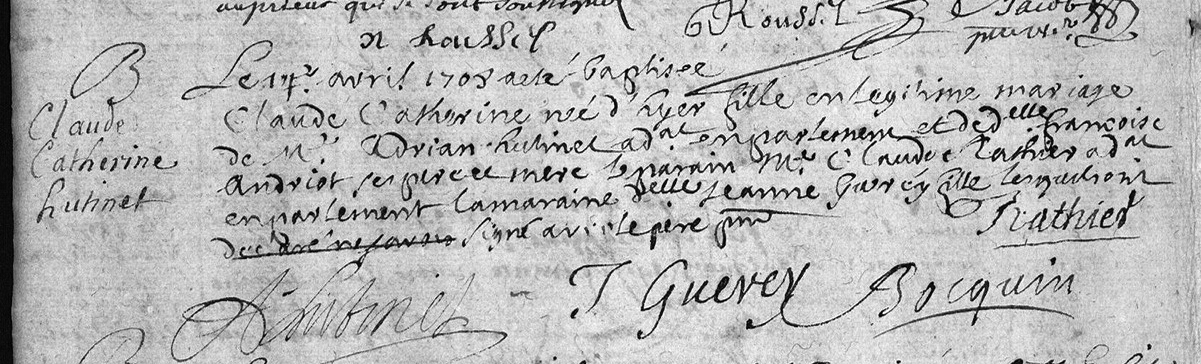 qui se sont soussignez
n Roussel
Roussel
Jacob
B
Claude
Catherine
hutinet
Le 14e avril 1708 a eté baptisée
Claude Catherine neé d'hyer fille en legitime mariage
de Mr. Adrian hutinet adat en parlement et de delle françoise
Andriot ses pere et mere le parain Mr. Claude rathier adat
en parlement la maraine delle Jeanne Guerey fille lesquels ont
declaré ne scavoir signé avec le père
Rathier
A hutinet
J Guerey
Bocquin